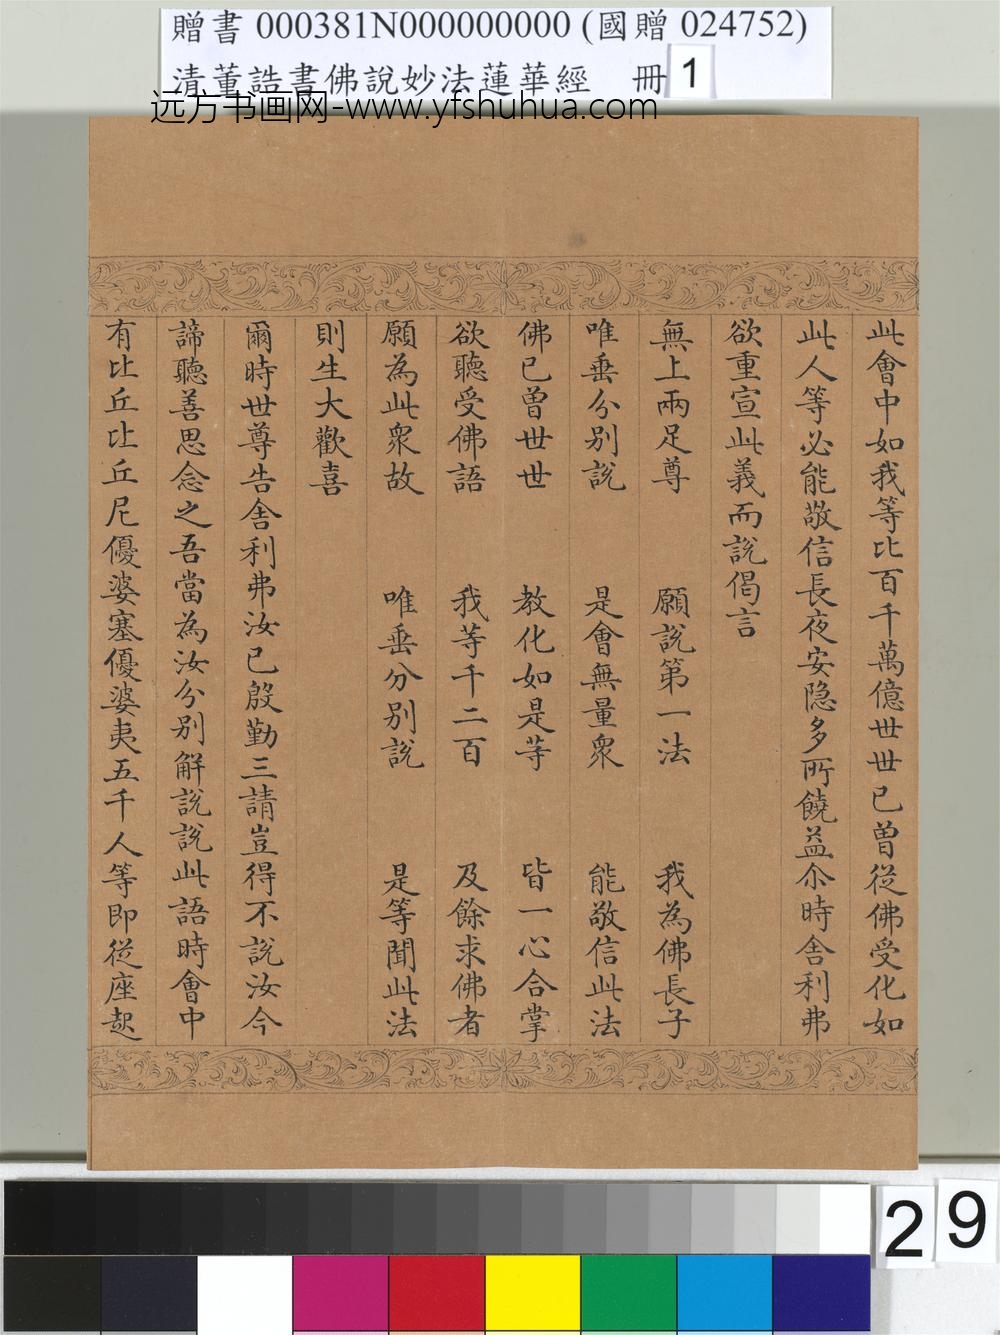 贈書 000381N000000000 (國贈 024752)
清董誥書佛說妙法蓮華經 冊 1
远方书画网-www.yfshuhua.com
此會中如我等比百千萬億世世已曾從佛受化如
此人等必能敬信長夜安隐多所饒益尒時舎利弗
欲重宣此義而說偈言
無上兩足尊 願說第一法 我為佛長子
唯垂分別說 是會無量衆 能敬信此法
佛已曾世世 教化如是等 皆一心合掌
欲聽受佛語 我等千二百 及餘求佛者
願為此衆故 唯垂分別說 是等聞此法
則生大歡喜
爾時世尊告舎利弗汝已殷勤三請豈得不說汝今
諦聽善思念之吾當為汝分別解說說此語時會中
有比丘比丘尼優婆塞優婆夷五千人等即從座起
29